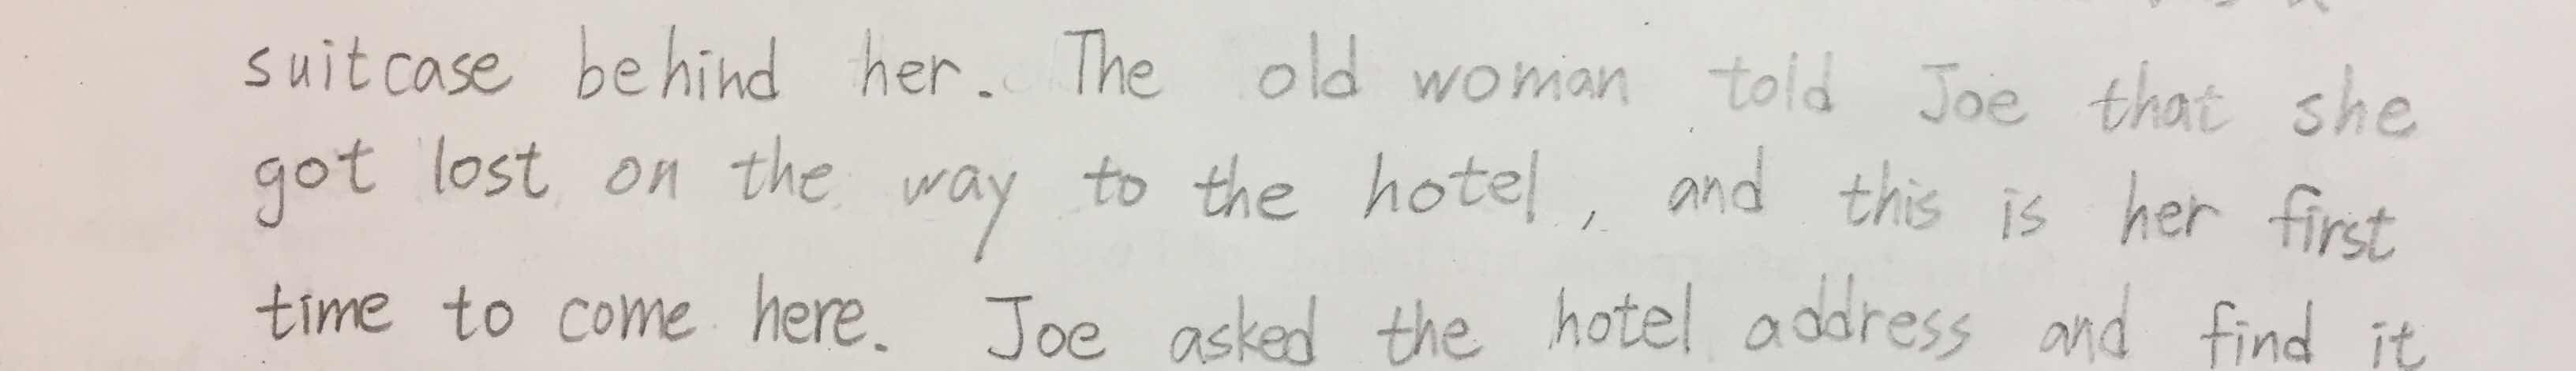 suitcase behind her. The old woman told Joe that she
got lost on the way to the hotel, and this is her first
time to come here. Joe asked the hotel address and find it